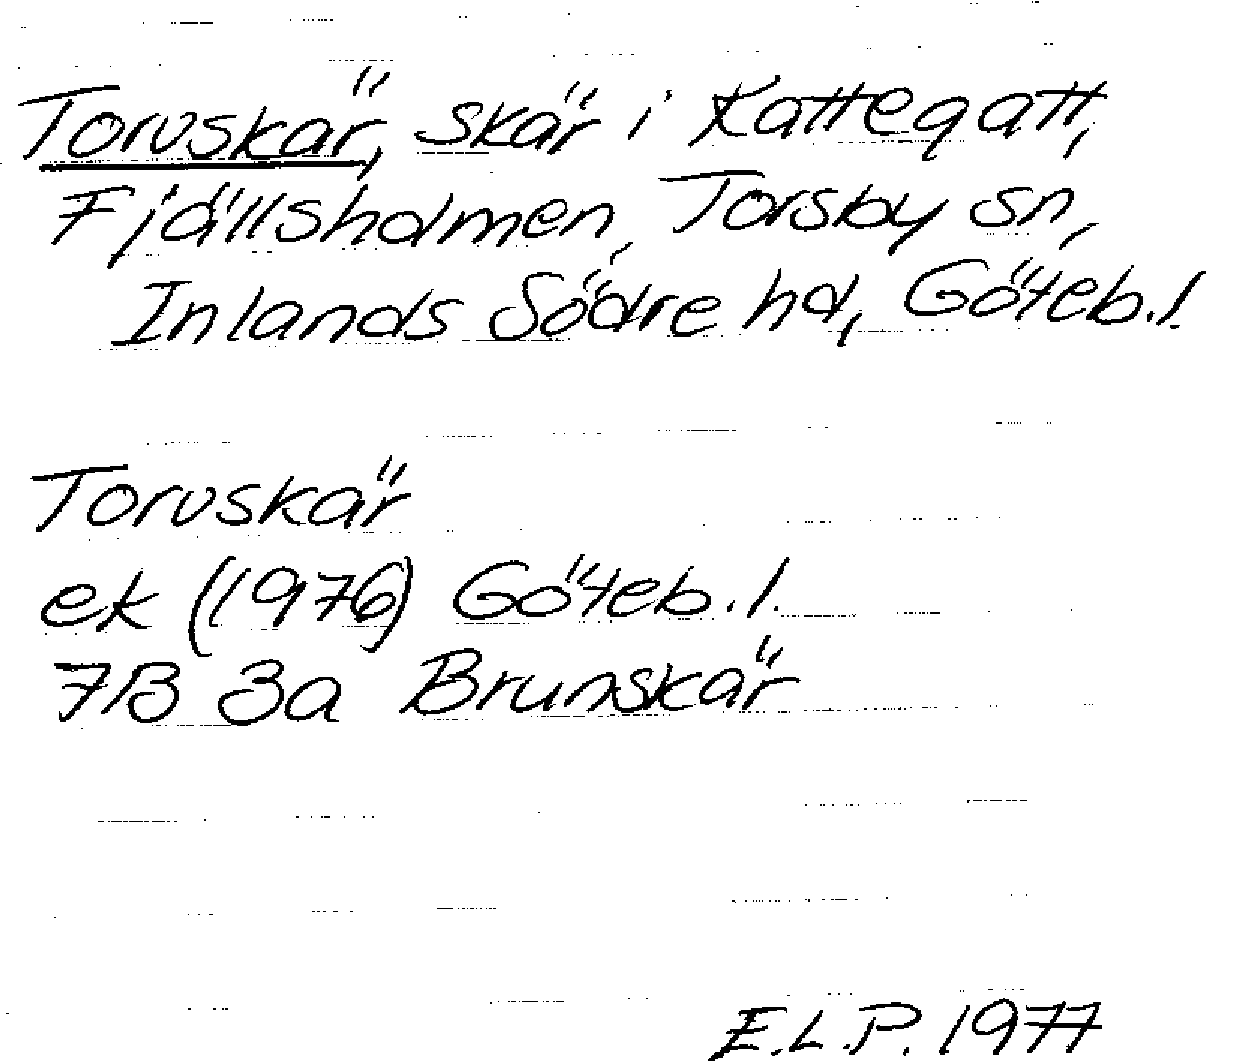 Torvskär, skär i Kattegatt,
Fjällsholmen, Torsby sn,
Inlands Södre hd, Göteb.l.
Torvskär
ek (1976) Göteb.l.
7B 3a Brunskär
E.L.P. 1977